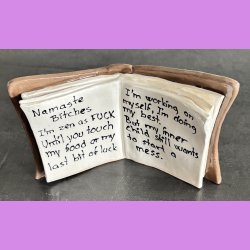 Namaste
Bitches
I'm zen as FUCK
Until you touch
my food or my
last bit of luck
I'm working on
myself, I'm doing
my best.
But my inner
child still wants
to start a
mess.